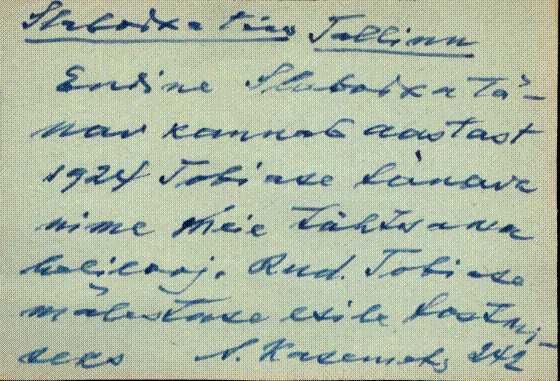 Slobodka tän. Tallinn
Endine Slobodka tä-
nav kannab aastast
1924 Tobiase tänava
nime meie tähtsama
helilooj. Rud. Tobiase
mälestuse esile tostmi-
seks A. Kasemets 242